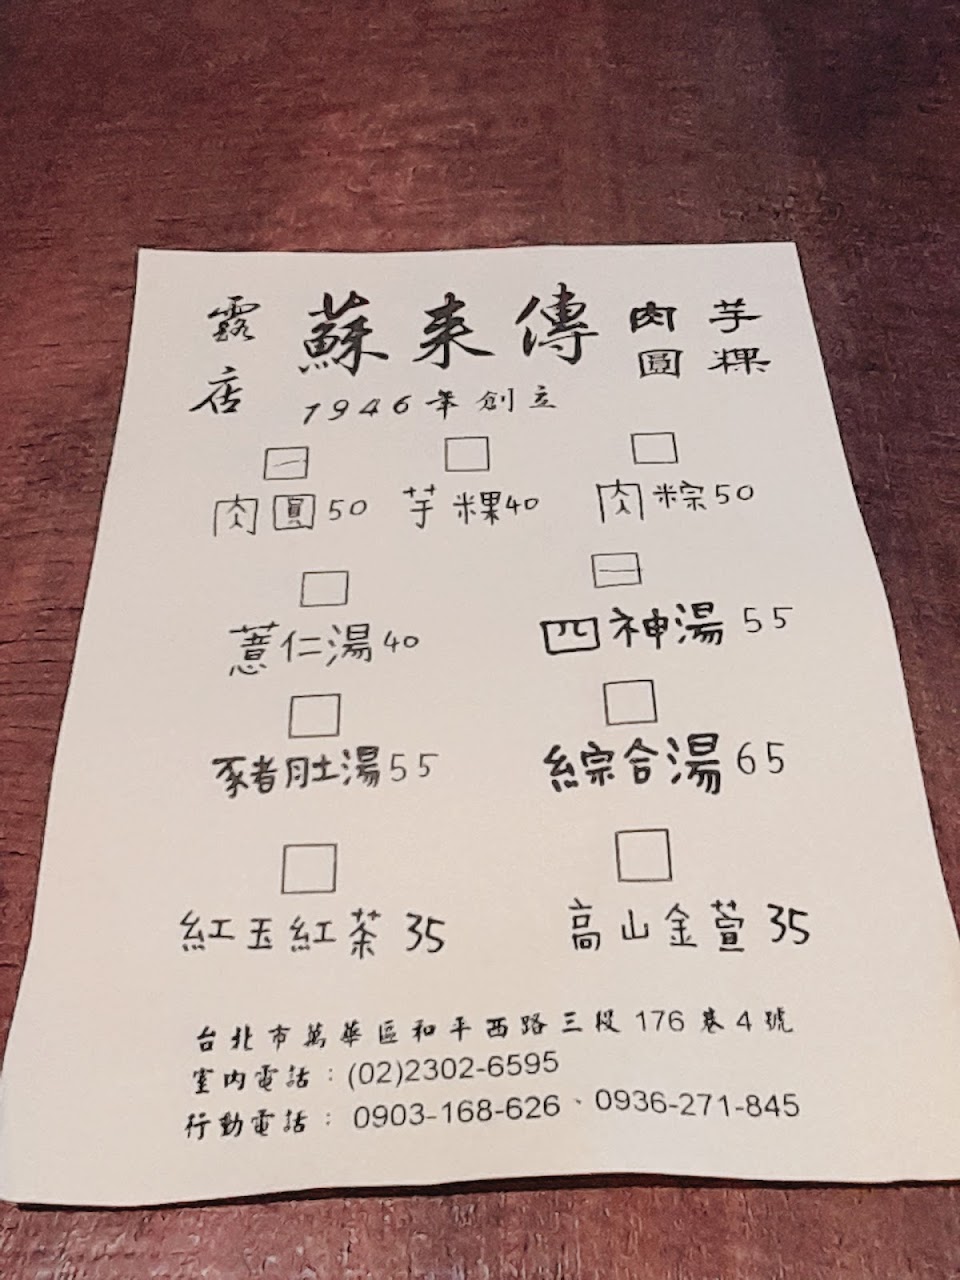 芋粿
肉圓
蘇来傳
露店
1946年創立
肉圓50 芋粿40 肉粽50
薏仁湯40 四神湯55
豬肚湯55 綜合湯65
紅玉紅茶35 高山金萱35
台北市萬華區和平西路三段176巷4號
室內電話：(02)2302-6595
行動電話：0903-168-626、0936-271-845